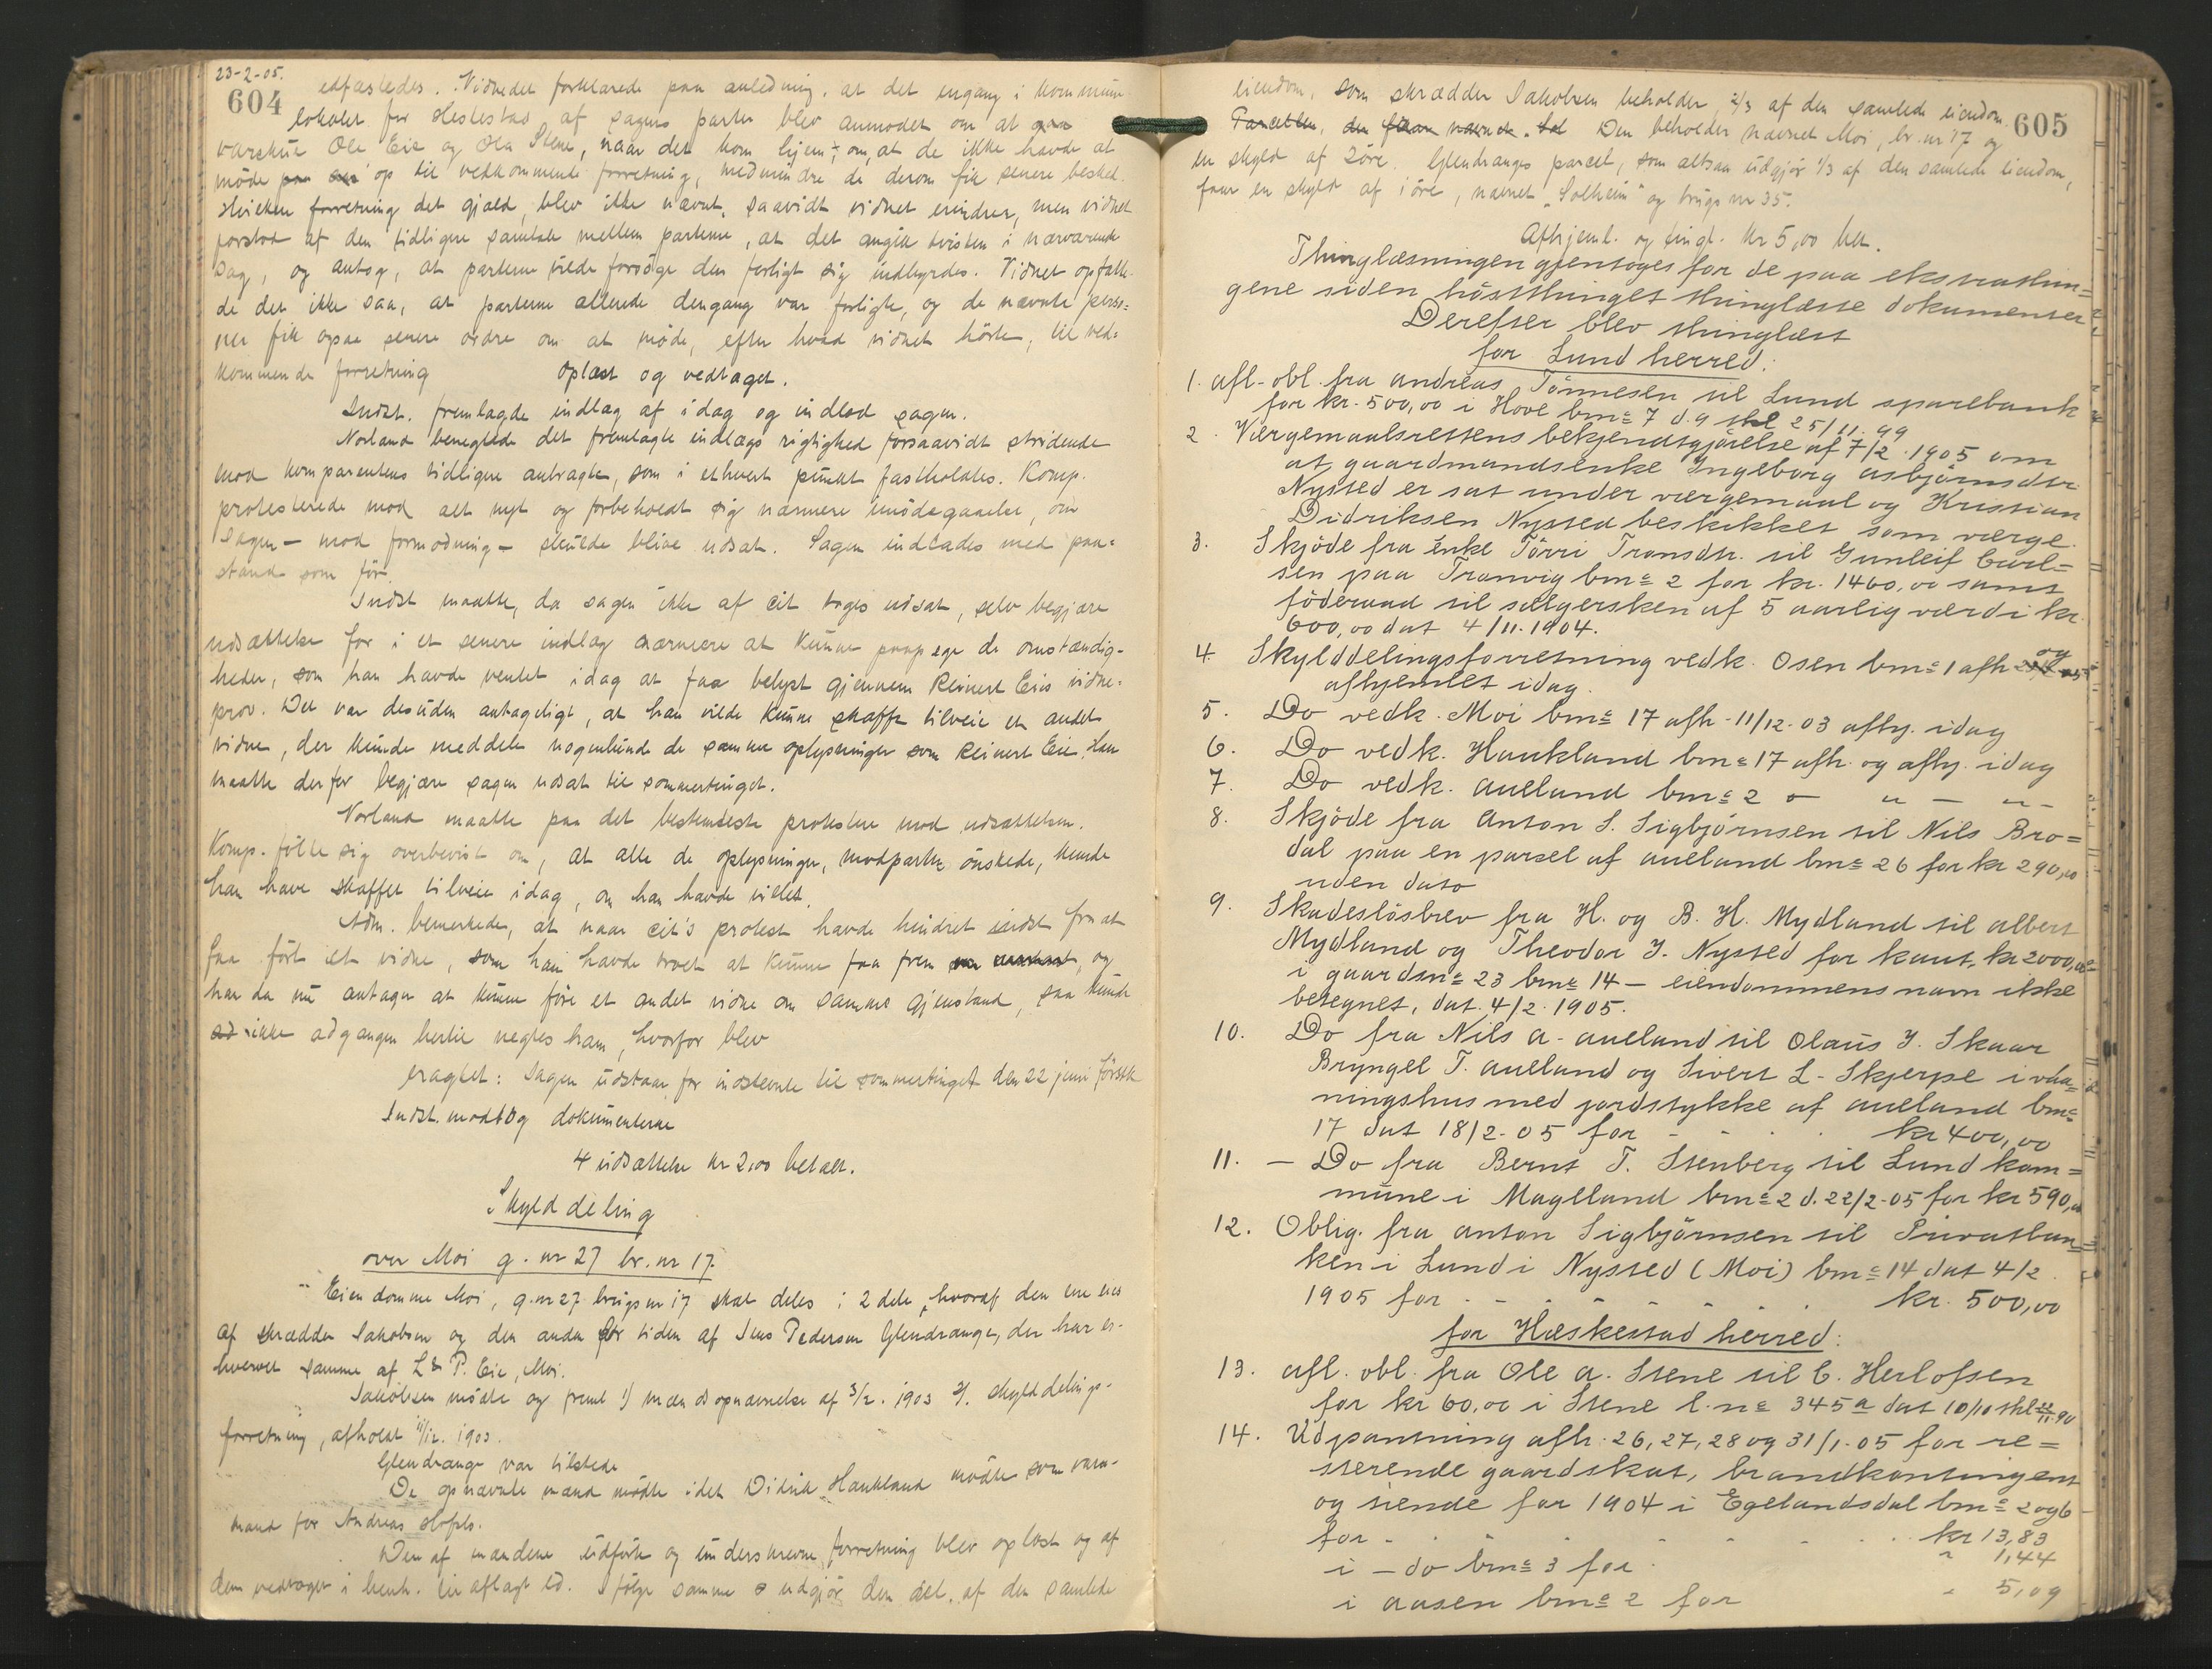 23-2-05.
604
edfæstedes. Vidnedet forklarede paa anledning, at det engang i kommune
lokalet for Heskestad af sagens parter blev anmodet om at
varskue Ole Eie og Ola Stene, naar det kom hjem, om, at de ikke havde at
møde op til vedkommende forretning, medmindre de derom fik senere besked.
Hvilken forretning det gjæld, blev ikke nævnt, saavidt vidnet erindrer, men vidnet
forstod af den tidligere samtale mellem parterne, at det angik tvisten i nærværende
Sag, og antog, at parterne vilde forsøge den forligt sig indbyrdes. Vidnet opfatte-
de det ikke saa, at parterne allerede dengang var forligte, og de nævnte perso=
ner fik ogsaa senere ordre om at møde, efter hvad vidnet hørte, til ved=
kommende forretning Oplæst og vedtaget.
Indst. fremlagde indlæg af idag og indlod sagen.
Norland benegtede det fremlagte indlægs rigtighed forsaavidt stridende
mod komparentens tidligere anbragte, som i ethvert punkt fastholdtes. Komp.
protesterede mod alt nyt og forbeholdt sig nærmere imødegaaelse, om
Sagen - mod formodning - skulde blive udsat. Sagen indlodes med paa=
stand som før.
Indst maatte, da sagen ikke af cit toges udsat, selv begjære
udsættelse for i et senere indlæg nærmere at kunne paapege de omstændig-
heder, som han havde ventet idag at faa belyst gjennem Reinert Eies vidne-
prov. Det var desuden antageligt, at han vilde kunne skaffe tilveie et andet
vidne, der kunde meddele nogenlunde de samme oplysninger som Reinert Eie. Han
maatte derfor begjære sagen udsat til sommertinget.
Norland maatte paa det bestemteste protestere mod udsættelsen.
Komp. følte sig overbevist om, at alle de oplysninger, modparten ønskede, kunde
han have skaffet tilveie idag, om han havde villet.
Adm. bemerkede, at naar cit's protest havde hindret indst fra at
faa ført et vidne, som han havde troet at kunne faa frem, og
han da nu antager at kunne føre et andet vidne om samme gjenstand, saa kunde
ikke adgangen hertil negtes ham, hvorfor blev
eragtet: Sagen udstaar for indstevnte til sommertinget den 22 juni førstk
Indst. modtog dokumenterne
4 udsættelse kr 2,00 betalt.
Skylddeling
over Moi g. nr 27 br. nr 17.
Eiendomme Moi, g.nr 27 brugs nr 17 skal deles i 2 dele, hvoraf den ene eies
af skrædder Jakobsen og den anden for tiden af Jens Pedersen Glendrange, der har er-
hvervet samme af L & P. Eie, Moi.
Jakobsen mødte og freml 1) mændsopnævnelse af 3/2. 1903 2). skylddelings-
forretning, afholdt 11/12. 1903.
Glendrange var tilstede
De opnævnte mænd mødte idet Didrik Haukland mødte som vara-
mand for Andreas Hofels.
Den af mændene udførte og underskrevne forretning blev oplæst og af
dem vedtaget i henh. til aflagt ed. Ifølge samme udgjør den del, af den samlede
605
eiendom, som skrædder Jakobsen beholder, 2/3 af den samlede eiendom.
Parcellen, Den beholder navnet Moi, br. nr 17 og
en skyld af 2 øre. Glendranges parcel, som altsaa udgjør 1/3 af den samlede eiendom,
faar en skyld af 1 øre, navnet "Solheim" og brugs nr 35.
Afhjeml. og tingl. kr 5,00 bet.
Thinglæsningen gjentoges for de paa ekstrathin=
gene siden høstthinget thinglæste dokumenter
Derefter blev thinglæst
for Lund herred:
1. afl. obl. fra Andreas Tønnesen til Lund sparebank
for kr. 500,00 i Hove bnr 7 d. 9 thl 25/11. 99
2. Værgemaalsrettens bekjendtgjørelse af 7/2. 1905 om
at gaardmandsenke Ingeborg Asbjørnsdtr.
Nysted er sat under værgemaal og Kristian
Didriksen Nysted beskikket som værge.
3. Skjøde fra enke Tørri Tronsdtr. til Gunleif Carl=
sen paa Tronvig bnr 2 for kr. 1400,00 samt
føderaad til sælgersken af 5 aarlig værdi kr.
600,00 dat 4/11. 1904.
4. Skylddelingsforretning vedk. Osen bnr 1 afh og
afhjemlet idag.
5. Do vedk. Moi bnr 17 afh. 11/12. 03 afhj. idag
6. Do vedk. Haukland bnr 17 afh. og afhj. idag
7. Do vedk. Aueland bnr 2 o - " - " -
8. Skjøde fra Anton S. Sigbjørnsen til Nils Bro=
dal paa en parsel af Aueland bnr 26 for kr 290,00
uden dato
9. Skadesløsbrev fra H. og B. H. Mydland til Albert
Mydland og Theodor J. Nysted for kaut. kr 2000,00
i gaardsnr 23 bnr 14 - eiendommens navn ikke
betegnet, dat. 4/2. 1905.
10. Do fra Nils A. Aueland til Olaus J. Skaar
Bryngel T. Aueland og Sivert L. Skjerpe i vaa=
ningshus med jordstykke af Aueland bnr
17 dat 18/2-05 for kr 400,00
11. - Do fra Bernt T. Stenberg til Lund kom=
mune i Magelland bnr 2 d. 22/2-05 for kr 590,00
12. Oblig. fra Anton Sigbjørnsen til Privatban=
ken i Lund i Nysted (Moi) bnr 14 dat 4/2
1905 for kr. 500,00
for Hæskestad herred:
13. afl. obl. fra Ole A. Stene til C. Herlofsen
for kr 60,00 i Stene l. nr 345a dat 10/10 thl 22/11. 90
14. Udpantning afh. 26, 27, 28 og 31/1. 05 for re=
sterende gaardskat, brandkontingent
og tiende for 1904 i Egelandsdal bnr 2 og 6
for kr 13,83
i - do bnr 3 for " 1,44
i Aasen bnr 2 for " 5,09